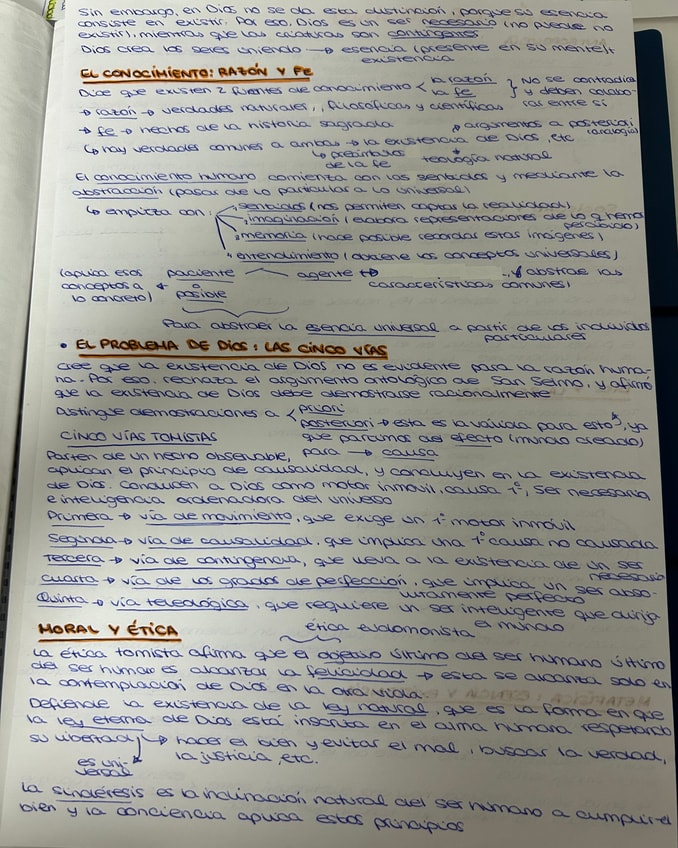 Sin embargo, en Dios no se da esta distinción, porque su esencia
consiste en existir. Por eso, Dios es un ser necesario (no puede no
existir), mientras que las criaturas son contingentes
Dios crea los seres uniendo → esencia (presente en su mente) +
existencia
EL CONOCIMIENTO: RAZÓN Y FE
Dice que existen 2 fuentes de conocimiento < la razón } No se contradicen
la fe y deben colabo-
rar entre sí
→ razón → verdades naturales, filosóficas y científicas
→ fe → hechos de la historia sagrada
argumentos a posteriori
(analogía)
↳ hay verdades comunes a ambas → la existencia de Dios, etc
↳ preámbulos de la fe
teología natural
El conocimiento humano comienza con los sentidos y mediante la
abstracción (pasar de lo particular a lo universal)
↳ empieza con: sentidos (nos permiten captar la realidad)
imaginación (elabora representaciones de lo q hemos
percibido)
memoria (hace posible recordar estas imágenes)
entendimiento (obtiene los conceptos universales)
(aplica esos conceptos a lo concreto) ← paciente o posible
agente → abstrae las
características comunes)
Para abstraer la esencia universal a partir de los individuos
particulares
• EL PROBLEMA DE DIOS: LAS CINCO VÍAS
cree que la existencia de Dios no es evidente para la razón huma-
na. Por eso, rechaza el argumento ontológico de San Selmo, y afirmó
que la existencia de Dios debe demostrarse racionalmente
Distingue demostraciones a < priori
posteriori → esta es la válida para esto, ya
que partimos del efecto (mundo creado)
para → causa
CINCO VÍAS TOMISTAS
Parten de un hecho observable,
aplican el principio de causalidad, y concluyen en la existencia
de Dios. Conducen a Dios como motor inmóvil, causa 1º, ser necesario
e inteligencia ordenadora del universo
Primera → vía de movimiento, que exige un 1º motor inmóvil
Segunda → vía de causalidad, que implica una 1º causa no causada
Tercera → vía de contingencia, que lleva a la existencia de un ser
necesario
Cuarta → vía de los grados de perfección, que implica un ser abso-
lutamente perfecto
Quinta → vía teleológica, que requiere un ser inteligente que dirija
el mundo
MORAL Y ÉTICA
ética eudomonista
La ética tomista afirma que el objetivo último del ser humano último
del ser humano es alcanzar la felicidad → esta se alcanza solo en
la contemplación de Dios en la otra vida
Defiende la existencia de la ley natural, que es la forma en que
la ley eterna de Dios está inscrita en el alma humana respetando
su libertad → hacer el bien y evitar el mal, buscar la verdad,
la justicia, etc.
es uni-
versal
La sindéresis es la inclinación natural del ser humano a cumplir el
bien y la conciencia aplica estos principios